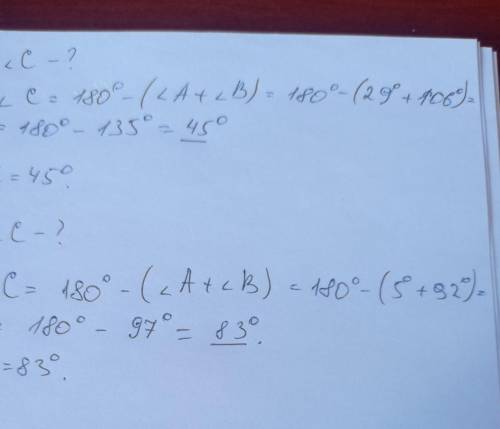 ∠C - ?
∠C = 180° - (∠A + ∠B) = 180° - (29° + 106°) =
= 180° - 135° = 45°
= 45°.
C - ?
C = 180° - (∠A + ∠B) = 180° - (5° + 92°) =
= 180° - 97° = 83°.
= 83°.